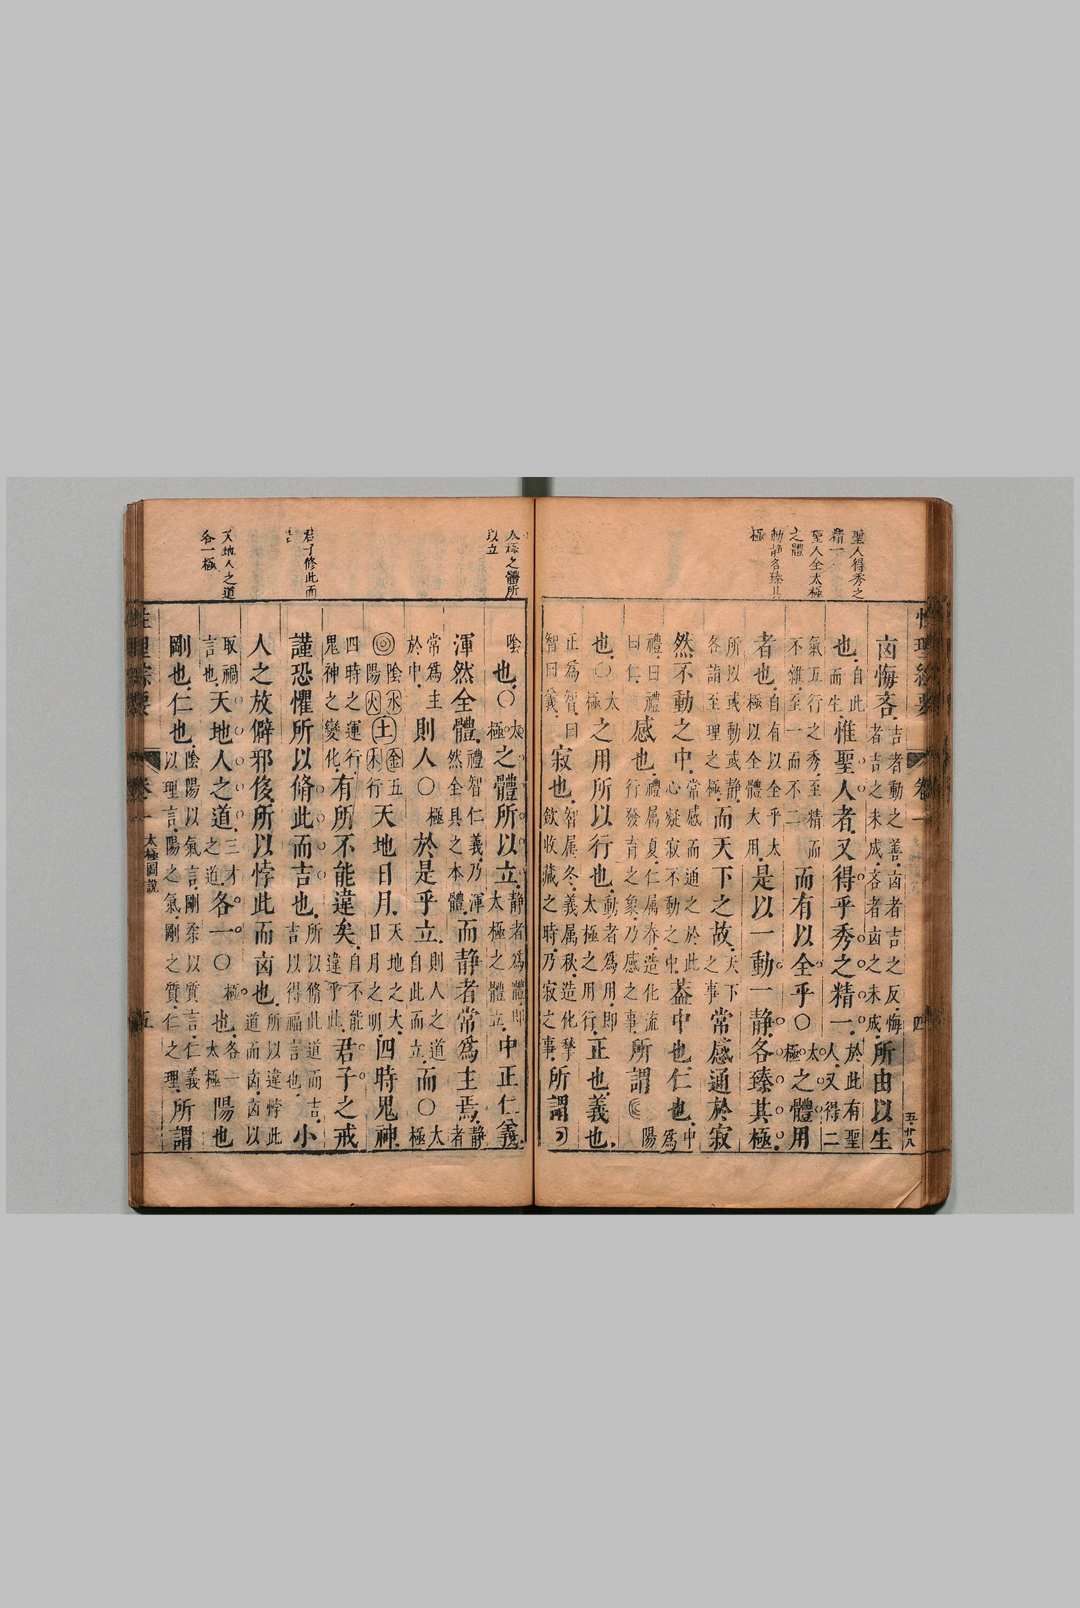 聖人得秀之
精一
聖人全太極
之體
動靜各臻其
極
性理綜要 卷一 四
五廿八
凶悔吝吉者動之善凶者吉之反悔者吉之未成吝者凶之未成所由以生
也自此而生惟聖人者又得乎秀之精一於此有聖人又得二
氣五行之秀至精而不雜至一而不二而有以全乎〇太極之體用
者也自有以全乎太極以全體大用是以一動一靜各臻其極
所以或動或靜各詣至理之極而天下之故天下之事常感通於寂
然不動之中常感而通之於此心凝寂不動之中蓋中也仁也中爲
禮曰禮曰仁感也禮属夏仁属春造化流行發育之象乃感之事所謂陽
也〇太極之用所以行也動者為用即太極之用行正也義也
正爲智曰智曰義寂也智属冬義属秋造化擎歛收藏之時乃寂之事所謂
人極之體所
以立
君子修此而
吉
天地人之道
各一極
陰也〇太極之體所以立靜者爲體即太極之體立中正仁義
渾然全體禮智仁義乃渾然全具之本體而静者常爲主焉静者
常爲主於中則人〇極於是乎立則人之道自此而立而〇太極
陰陽水火土金木五行天地日月天地之大日月之明四時鬼神
四時之運行鬼神之變化有所不能違矣自不能違乎此君子之戒
謹恐懼所以脩此而吉也所以脩此道而吉吉以得福言也小
人之放僻邪侈所以悖此而凶也所以違悖此道而凶凶以
取禍言也天地人之道三才之道各一〇極也各一太極陽也
剛也仁也陰陽以氣言剛柔以質言仁義以理言陽之氣剛之質仁之理所謂
性理綜要 卷一 太極圖說 五